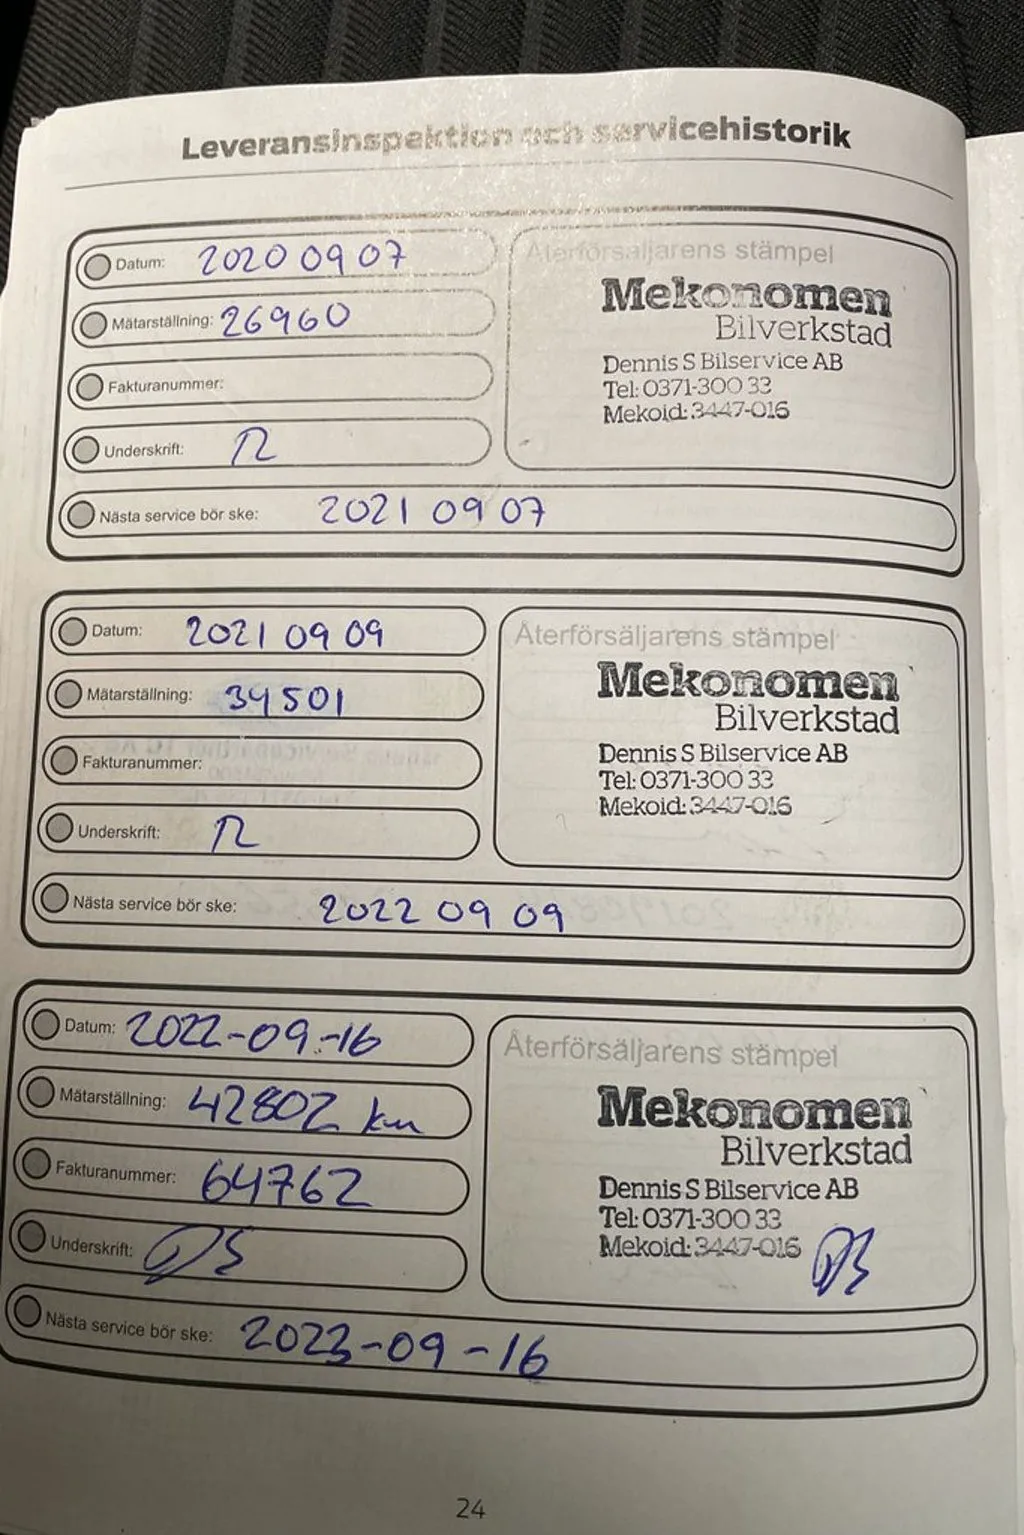 Leveransinspektion och servicehistorik
Datum: 2020 09 07
Mätarställning: 26960
Fakturanummer:
Underskrift:
Nästa service bör ske: 2021 09 07
Återförsäljarens stämpel
Mekonomen
Bilverkstad
Dennis S Bilservice AB
Tel: 0371-300 33
Mekoid: 3447-016
Datum: 2021 09 09
Mätarställning: 34501
Fakturanummer:
Underskrift:
Nästa service bör ske: 2022 09 09
Återförsäljarens stämpel
Mekonomen
Bilverkstad
Dennis S Bilservice AB
Tel: 0371-300 33
Mekoid: 3447-016
Datum: 2022-09-16
Mätarställning: 42802 km
Fakturanummer: 64762
Underskrift: DS
Nästa service bör ske: 2023-09-16
Återförsäljarens stämpel
Mekonomen
Bilverkstad
Dennis S Bilservice AB
Tel: 0371-300 33
Mekoid: 3447-016 DS
24